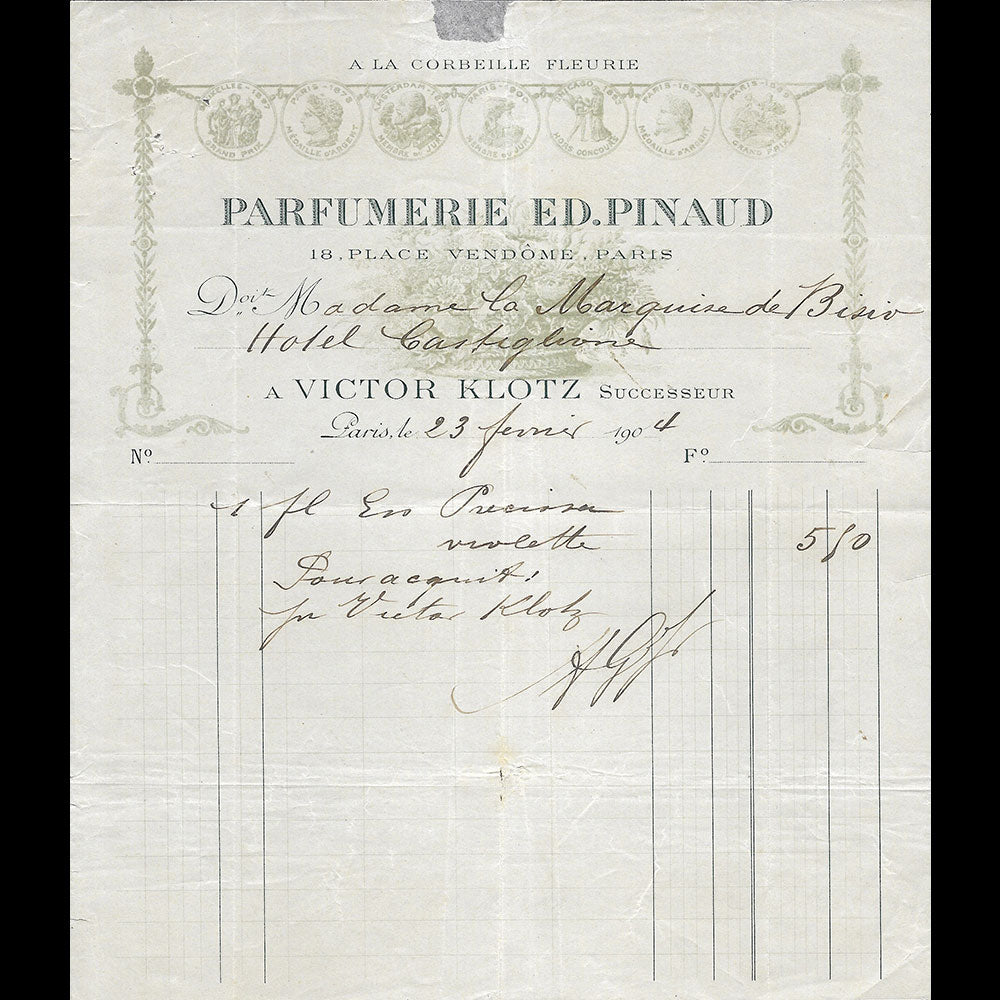 A LA CORBEILLE FLEURIE
BRUXELLES - 1897 GRAND PRIX
PARIS - 1878 MÉDAILLE D'ARGENT
AMSTERDAM - 1883 MEMBRE DU JURY
PARIS - 1900 MEMBRE DU JURY
CHICAGO HORS CONCOURS
PARIS - 1867 MÉDAILLE D'ARGENT
PARIS - 1889 GRAND PRIX
PARFUMERIE ED. PINAUD
18, PLACE VENDÔME, PARIS
Doit Madame la Marquise de Bisio
Hotel Castiglione
A VICTOR KLOTZ SUCCESSEUR
Paris, le 23 fevrier 1904
Nº
Fº
1 fl Ess Preciosa
violette 5 50
Pour acquit :
pr Victor Klotz